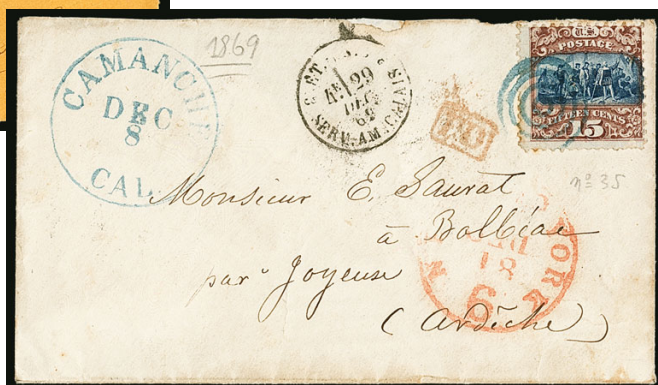 CAMANCHE
DEC
8
CAL.
1869
29
DEC
69
SERV. AM. CALAIS
U S
POSTAGE
FIFTEEN CENTS
15
nº 35
Monsieur E. Saurat
à Balbiac
par Joyeuse
(Ardèche)
YORK
18
6